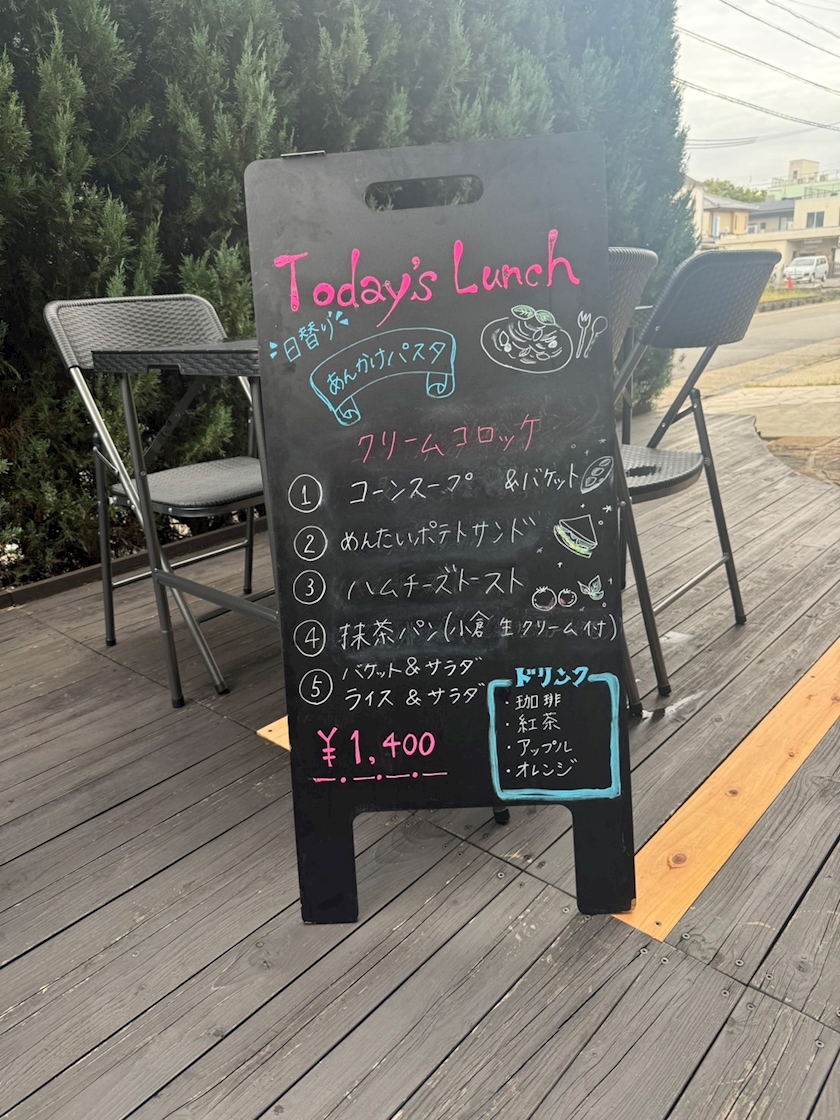 Today's Lunch
日替り
あんかけパスタ
クリームコロッケ
① コーンスープ &バケット
② めんたいポテトサンド
③ ハムチーズトースト
④ 抹茶パン(小倉 生クリーム付)
⑤ バケット&サラダ
ライス & サラダ
¥1,400
ドリンク
・珈琲
・紅茶
・アップル
・オレンジ